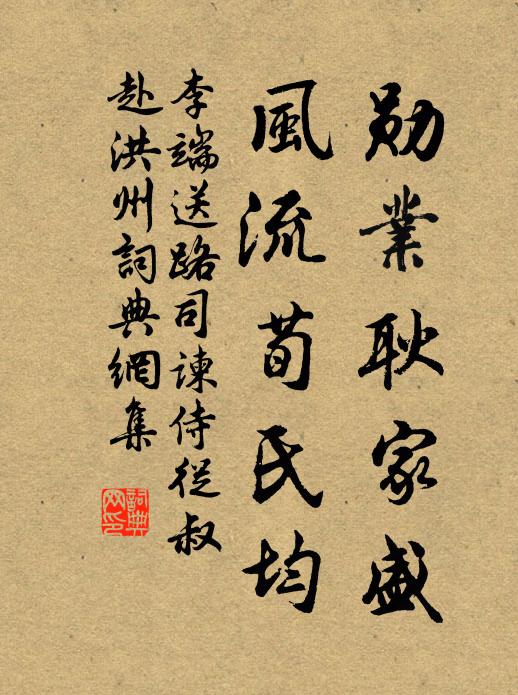 勋業耿家盛
風流荀氏均
李端送路司諫侍從叔
赴洪州詞典網集
詞典网印